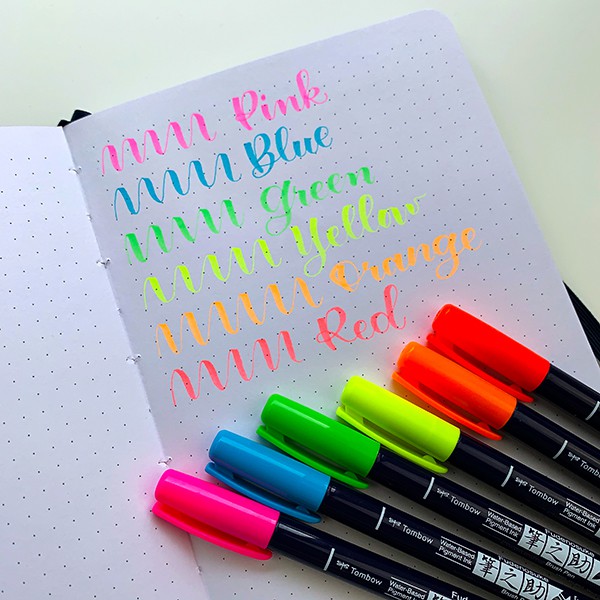 Pink
Blue
Green
Yellow
Orange
Red
Tombow
Tombow
Water-Based
Pigment Ink
Tombow
Water-Based
Pigment Ink
筆之助
Brush Pen
Tombow
Water-Based
Pigment Ink
筆之助
Tombow